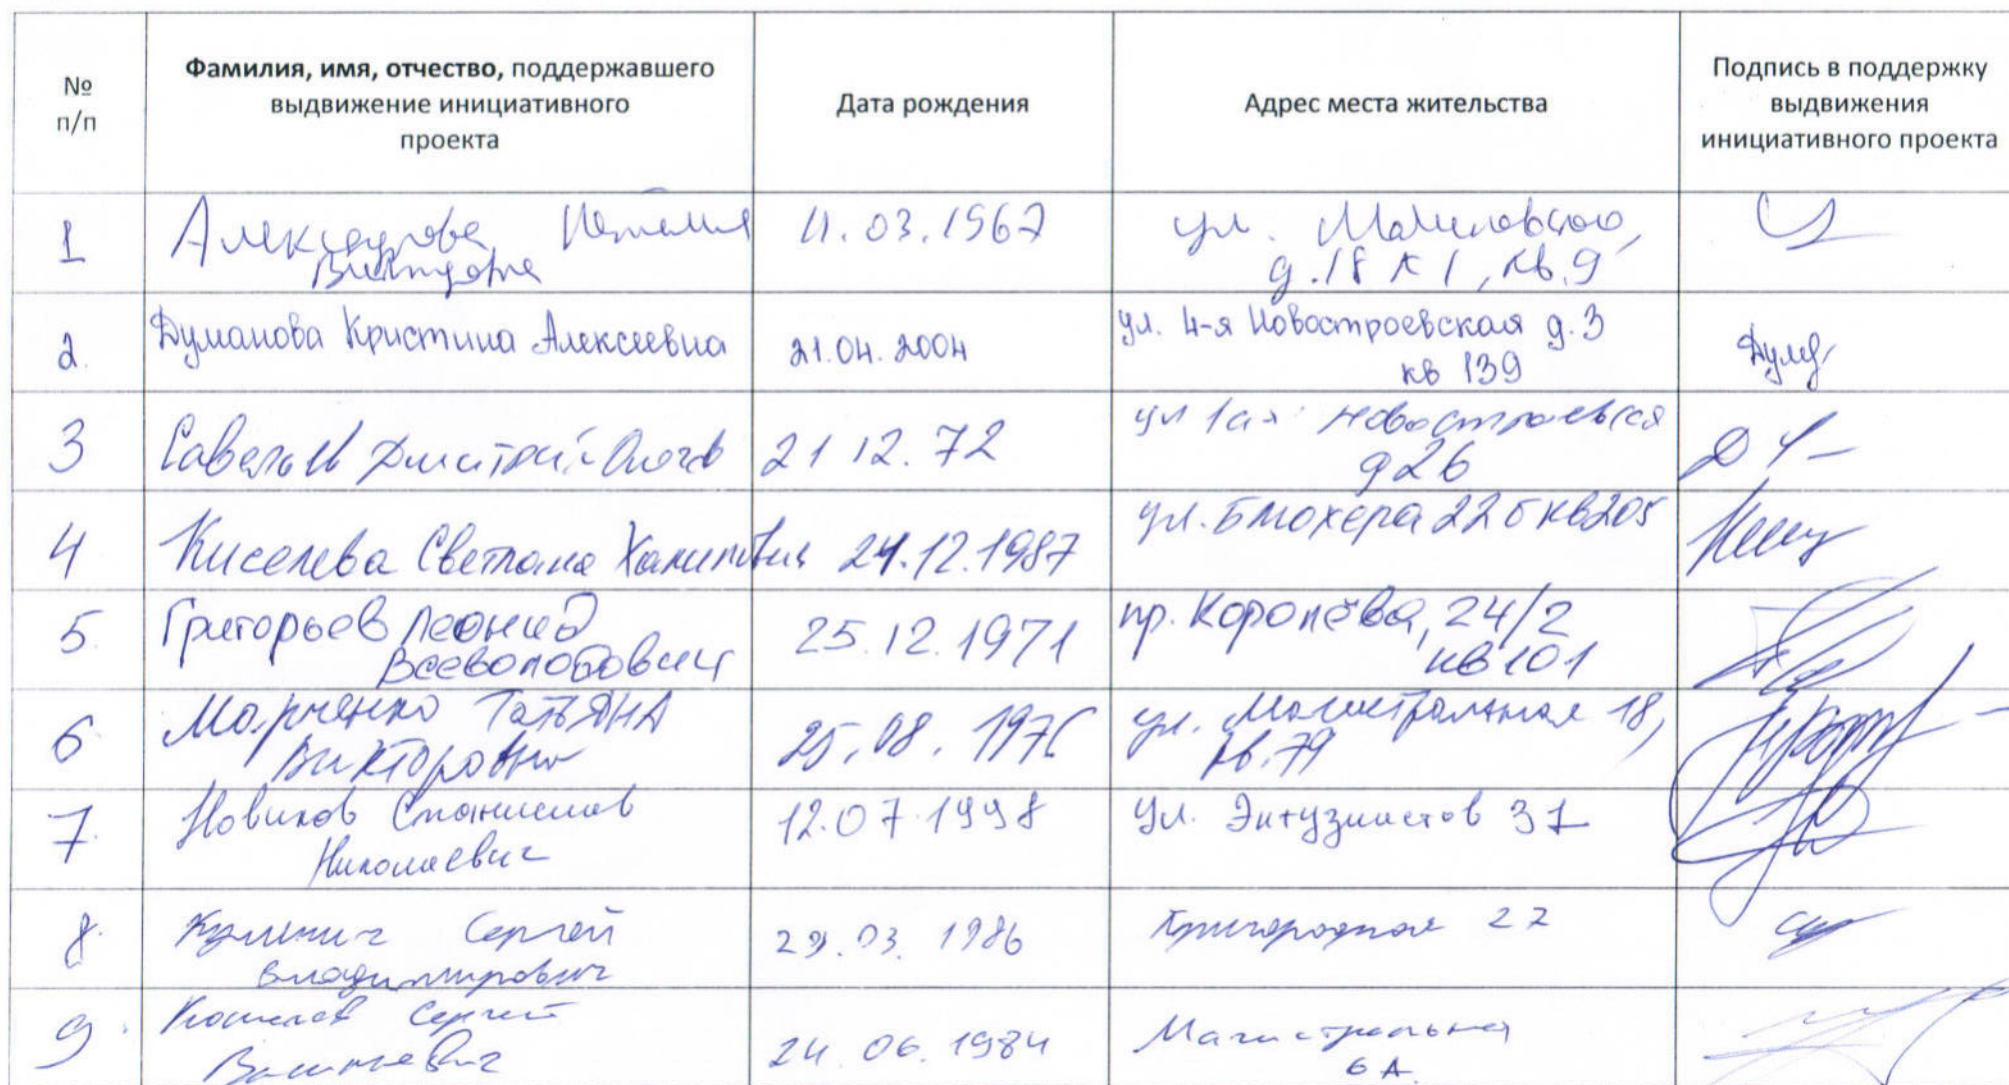 № п/п
Фамилия, имя, отчество, поддержавшего
выдвижение инициативного
проекта
Дата рождения
Адрес места жительства
Подпись в поддержку
выдвижения
инициативного проекта
1
Александрова Наталия
Викторовна
11.03.1967
ул. Малиновского,
д.18 к 1, кв.9
2.
Думанова Кристина Алексеевна
21.04.2004
ул. 4-я Новостроевская д.3
кв 139
3
Савельев Дмитрий Олегов
21 12. 72
ул 1ая Новостроевская
д 26
4
Киселева Светлана
24.12.1987
ул. Блюхера 22Б кв205
5.
Григорьев Леонид
Всеволодович
25.12.1971
пр. Королёва, 24/2
кв 101
6
Марченко Татьяна
Викторовна
25.08.1976
ул. Магистральная 18,
кв.79
7.
Новиков Станислав
Николаевич
12.07.1998
Ул. Энтузиастов 31
8.
Сергей
Владимирович
29.03. 1986
Пригородная 22
9.
Кошелев Сергей
Васильевич
24.06.1984
Магистральная
6 А.